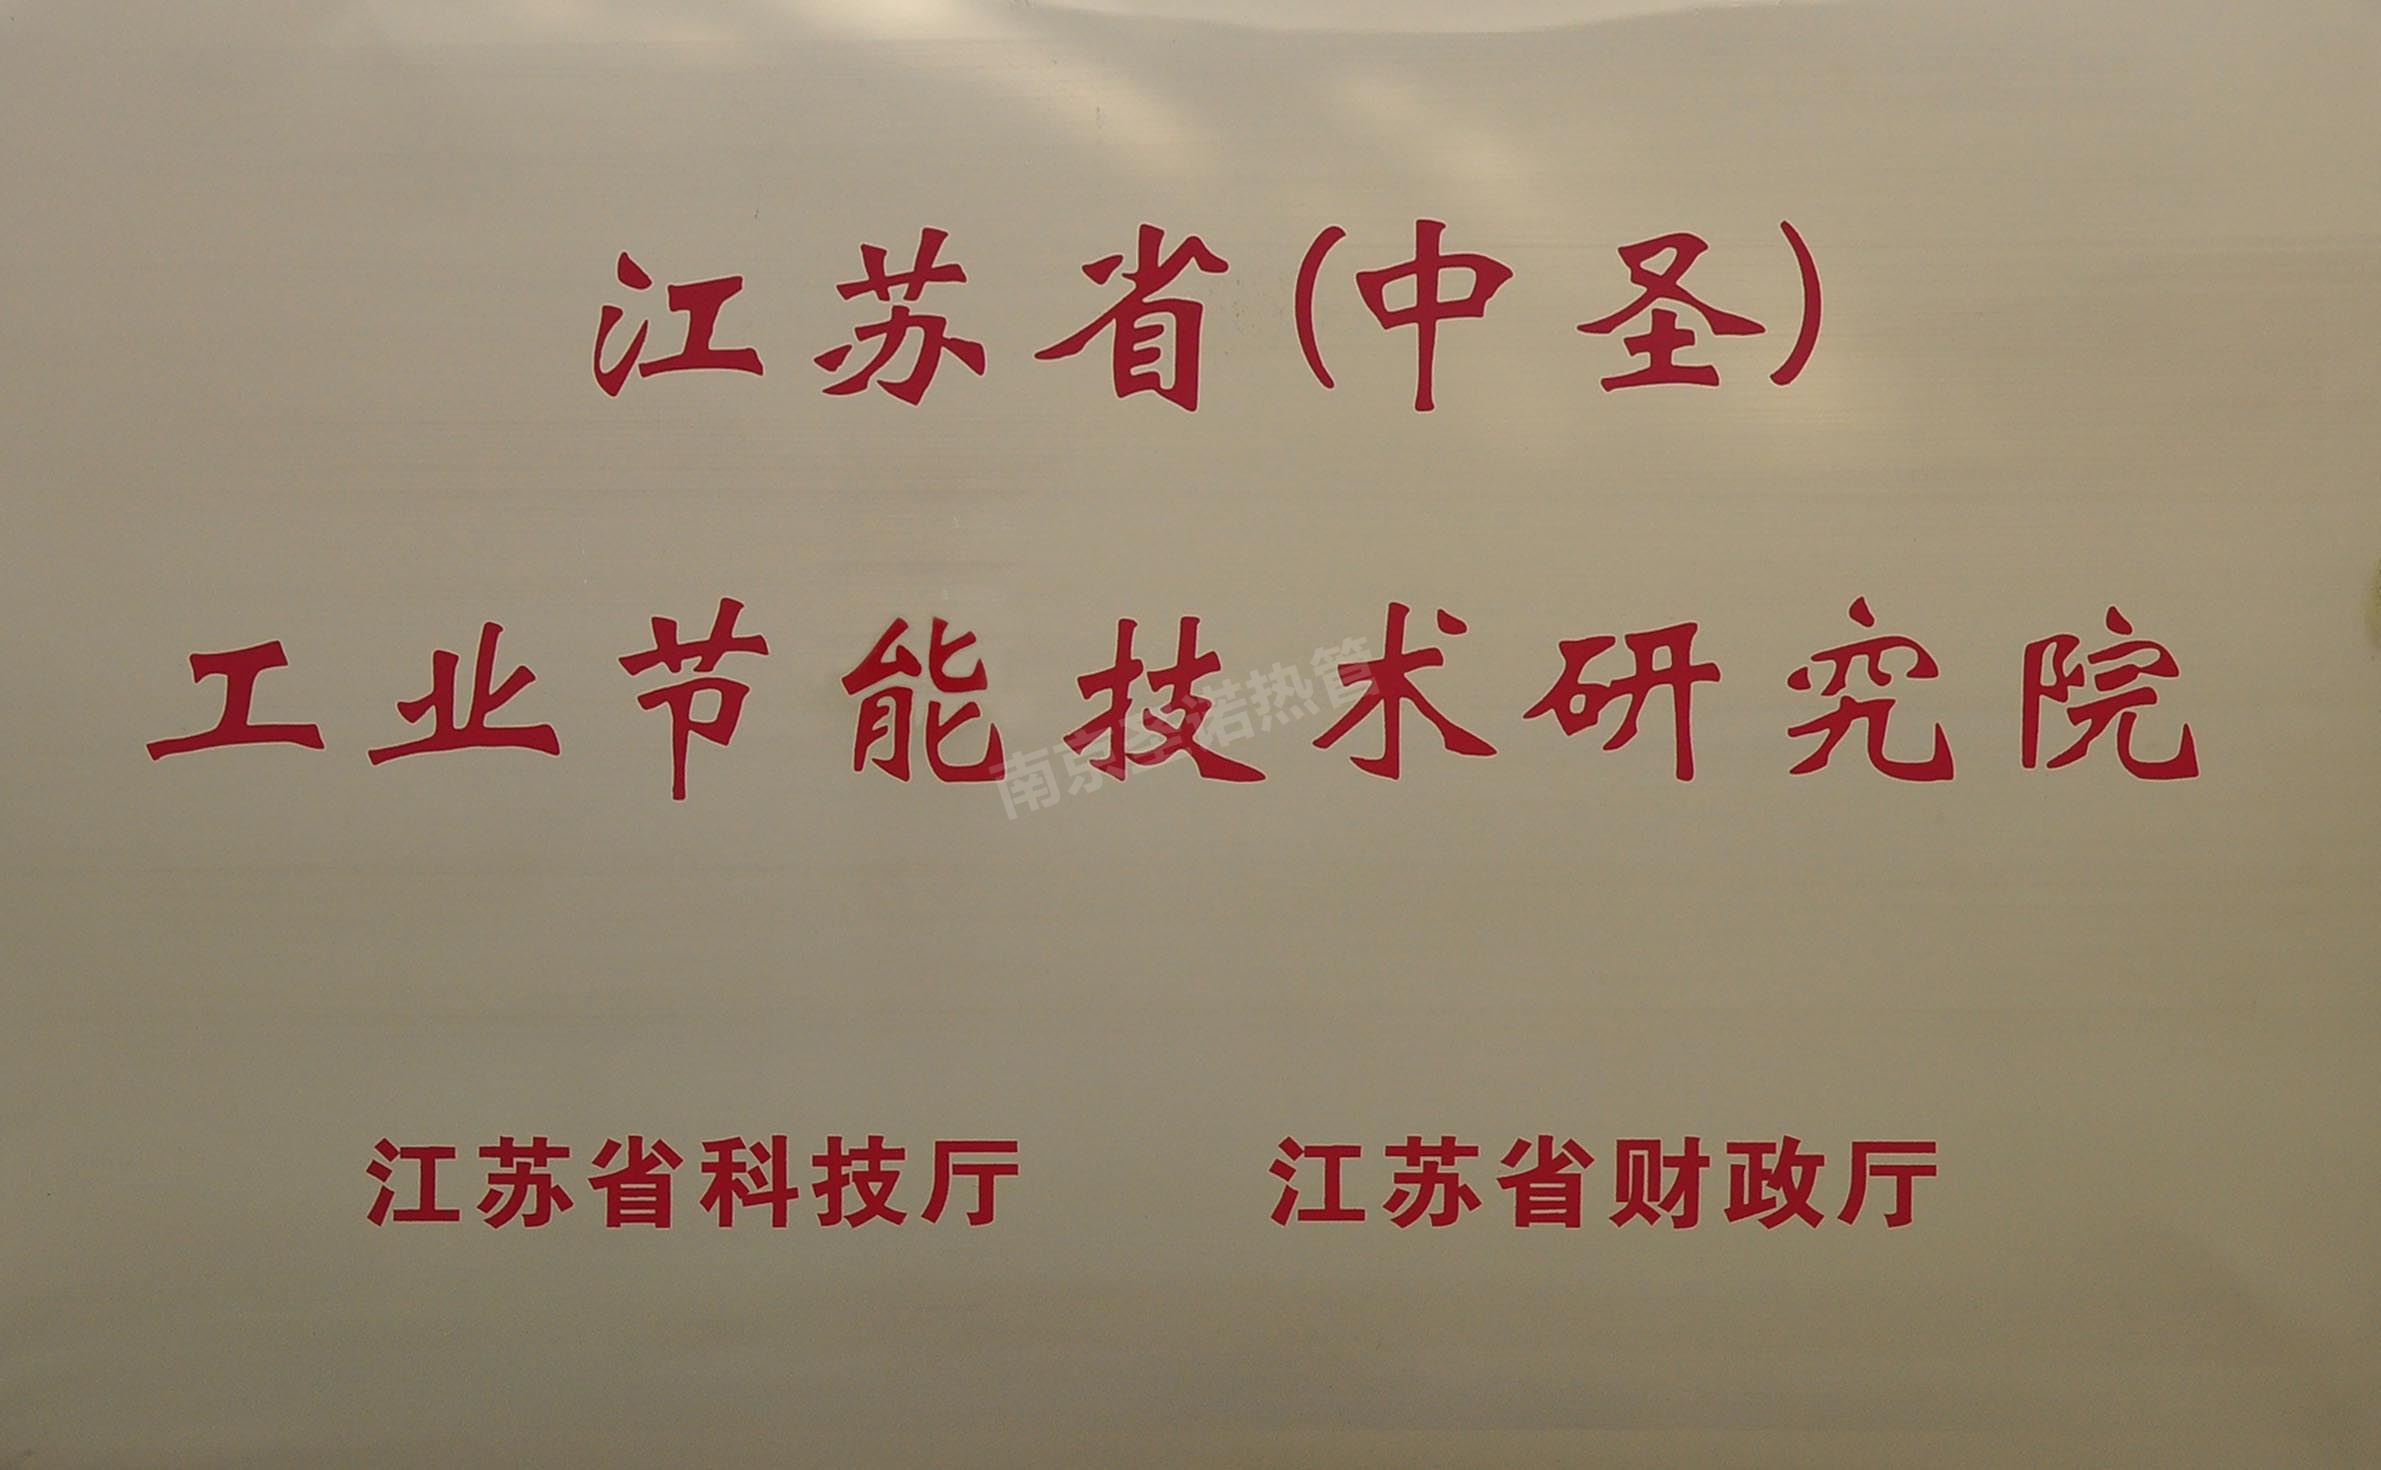 江苏省(中圣)
工业节能技术研究院
南京圣诺热管
江苏省科技厅 江苏省财政厅